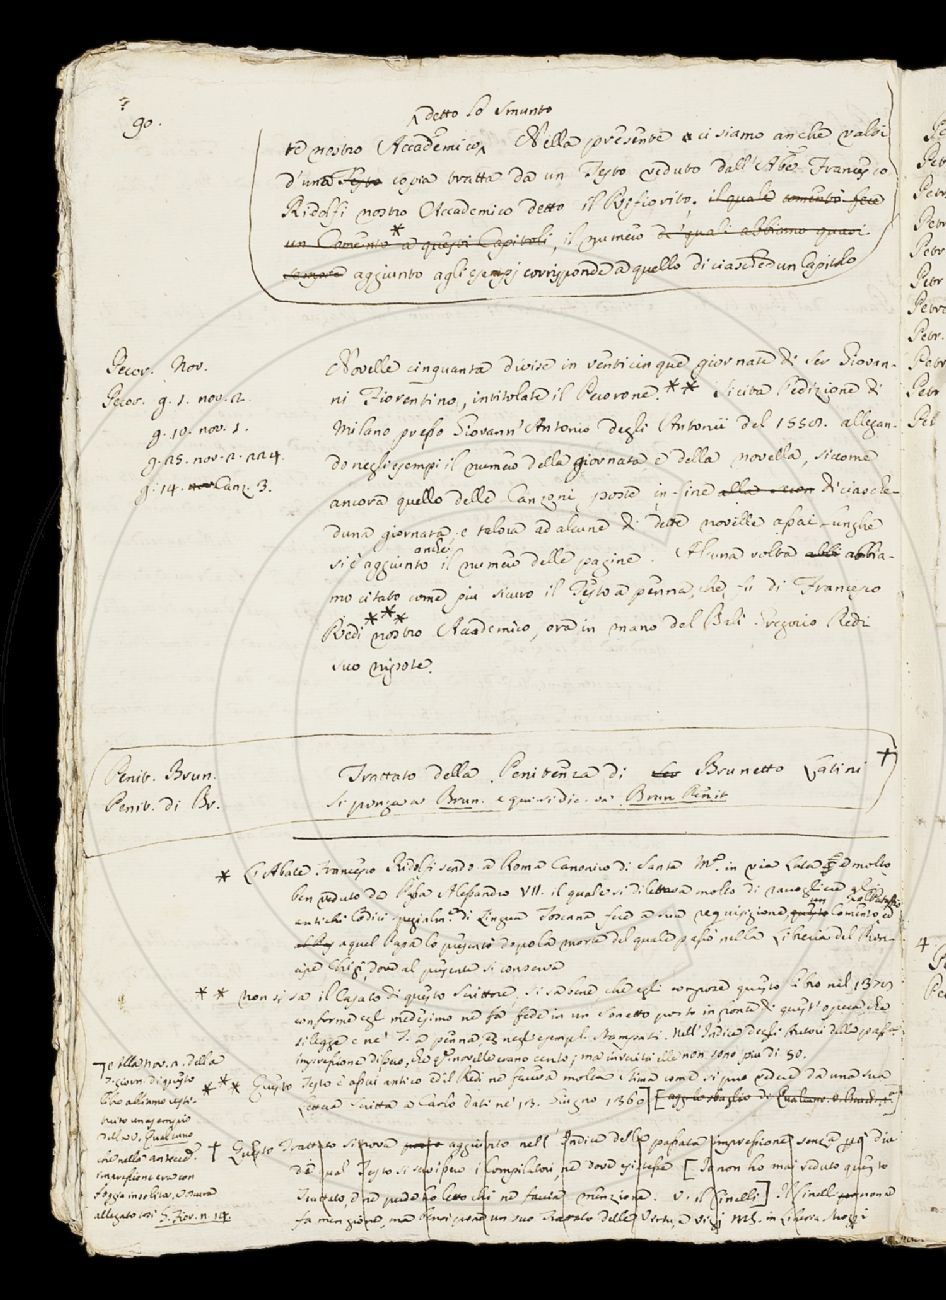 90.
detto lo Smunto
te nostro Accademico. Nella presente ci siamo anche valsi
d'una Testo copia tratta da un Testo veduto dall'Abe. Francesco
Ridolfi nostro Accademico detto il Rifiorito. il quale
un Comento * a questi Capitoli, il numero de' quali abbiamo quasi
sempre aggiunto agli esempj corrisponde a quello di ciascedun Capitolo
Pecor. Nov.
Pecor. g. 1. nov. 2.
g. 10. nov. 1.
g. 25. nov. 2. 224.
g. 14. nov Canz. 3.
Novelle cinquanta divise in venticinque giornate di Ser Giovan-
ni Fiorentino, intitolate il Pecorone. ** Si cita l'edizione di
Milano presso Giovann'Antonio degli Antonii del 1558. allegan-
do negli esempi il numero della giornata e della novella, siccome
ancora quello delle Canzoni poste in fine alla di ciasche-
duna giornata, e talora ad alcune di dette novelle assai lunghe
anche
si è aggiunto il numero delle pagine. Alcuna volta abbia-
mo citato come piu sicuro il Testo a penna, che fu di Francesco
Redi *** nostro Accademico, ora in mano del Bali Gregorio Redi
suo nipote.
Penit. Brun.
Penit. di Br.
Trattato della Penitenza di Ser Brunetto Latini †
Si ponga a Brun. e quivi si dica Brun. Penit
* L'Abate Francesco Ridolfi sendo a Roma Canonico di Santa Ma. in via Lata e molto
ben veduto da Papa Alessandro VII. il quale si dilettava molto di raccogliere gli
antichi Codici specialmte. di Lingua Toscana, fece a sua requisizione questo Comento, ed
a quel Papa lo presentò dopo la morte del quale passò nella Libreria del Prin-
cipe Chigi dove al presente si conserva
** non si sa il Casato di questo Scrittore, si sa bene che egli compose questo Libro nel 1378
conforme egli medesimo ne fa fede in un Sonetto posto in fronte di quest'opera, che
si legge e ne' T. a penna, e negli esempl. stampati. Nell'Indice degli Autori della passt.
impressione disse, che qte. novelle erano cento, ma in verità elle non sono piu di 50.
*** Questo Testo è assai antico ed il Redi ne faceva molta stima come si può vedere da una sua
Lettera scritta a Carlo Dati ne' 13. Giugno 1660
e alla nov. 2. della
giorn. di questo
libro abbiamo resti-
tuito un esempio
della V. Qualcuno
che nella anteced.
impressione era con
foggia insolita, e oscura
allegato così S. Fior. n. 14.
† Questo Trattato si trova aggiunto nell'Indice della passata impressione, senza però dire
da qual Testo si servissero i Compilatori, ne dove esistesse [Io non ho mai veduto questo
Trattato, e ne pure ho letto chi ne faccia menzione. V. il Cinelli] Il Cinelli non ne
fa menzione, ma bensi pone un suo Trattato delle Virtù, e vizi MS. in Libreria Mozzi